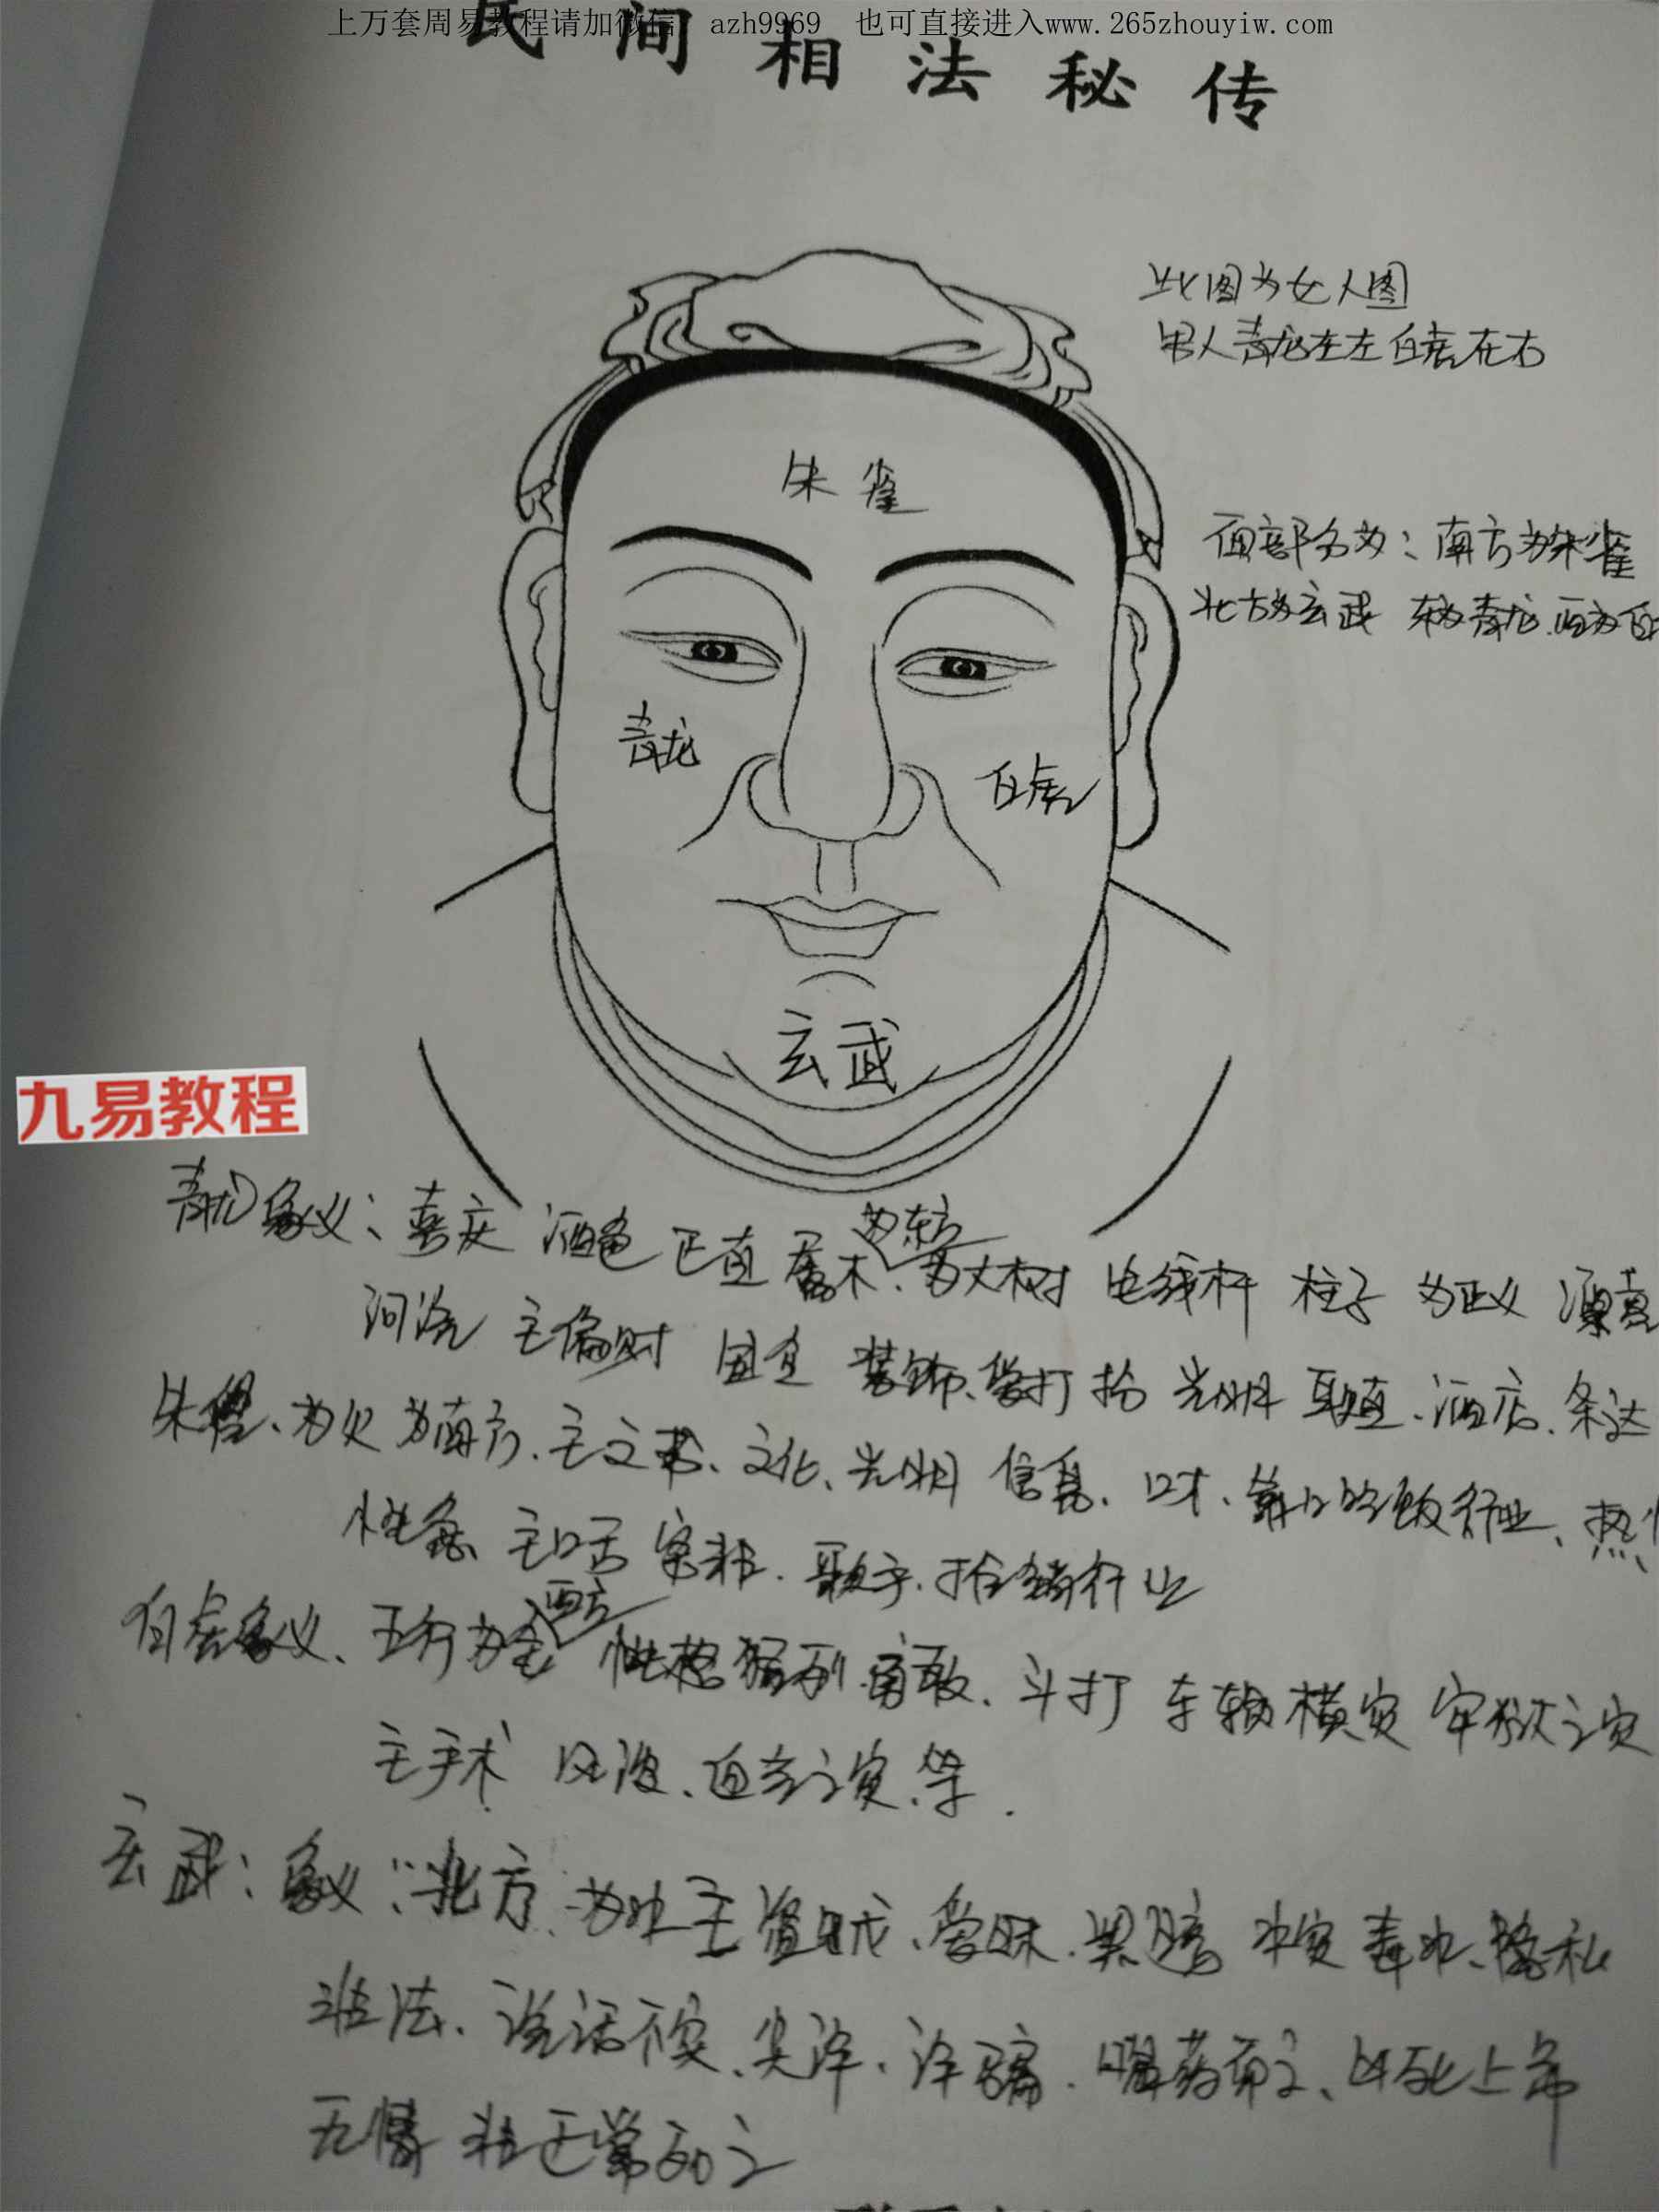 上万套周易教程请加微信 azh9969 也可直接进入www.265zhouyiw.com
民间相法秘传
此图为女人图
男人青龙在左 白虎在右
朱雀
面部分为：南方为朱雀
北方为玄武 东为青龙.西为白
青龙
白虎
玄武
九易教程
青龙象义：喜庆 酒色 正直 属木、为东方 为大树 电线杆 柱子 为正义
河流 主偏财 固定 装饰、爱打扮 光明 耿直、酒店、条达
朱雀、为火 为南方、主文书、文化、光明 信息、口才、靠口的行业、热
性急、主口舌 官非、歌手、推销行业
白虎象义、五行为金 西方 性格猛烈.勇敢、斗打 车祸横灾 牢狱之灾
主手术 风波、血光之灾.等.
玄武：象义：北方、为水主盗贼、暧昧、黑暗 水灾 毒水、隐私
非法、说话不实、奸诈、诈骗、喝药而亡、凶死上吊
无情 非正常死亡